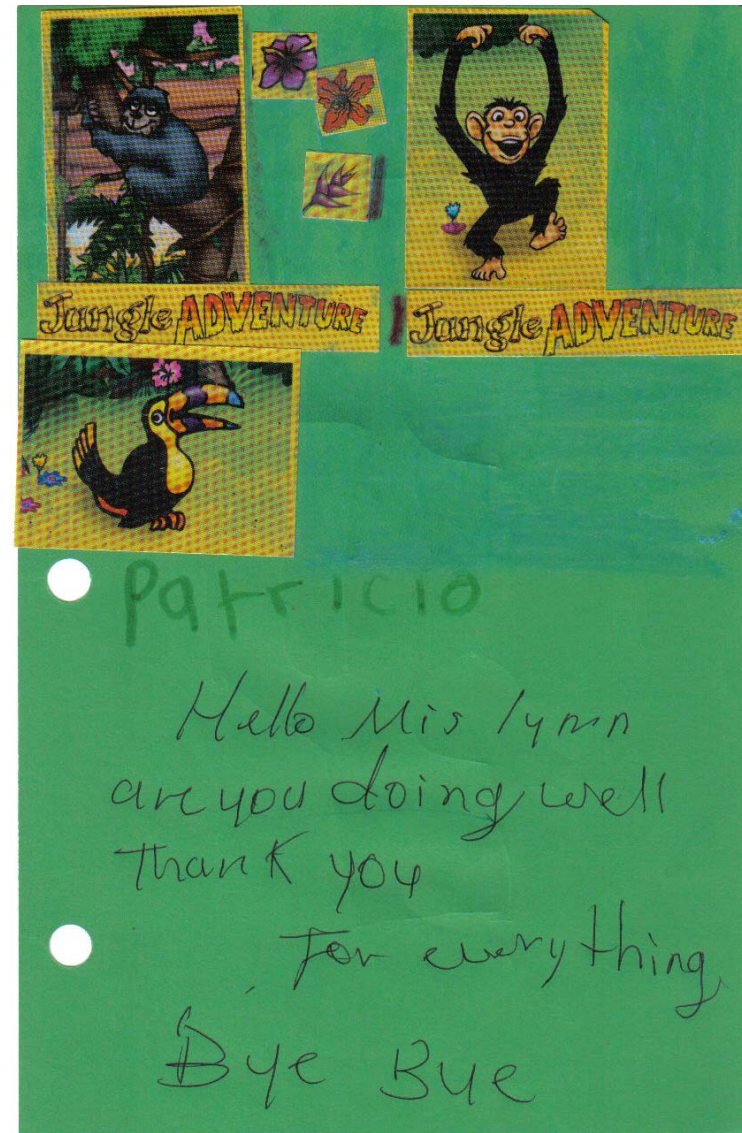 Jungle ADVENTURE
Jungle ADVENTURE
Patricio
Hello Mis lynn
are you doing well
Thank you
For everything
Bye Bye